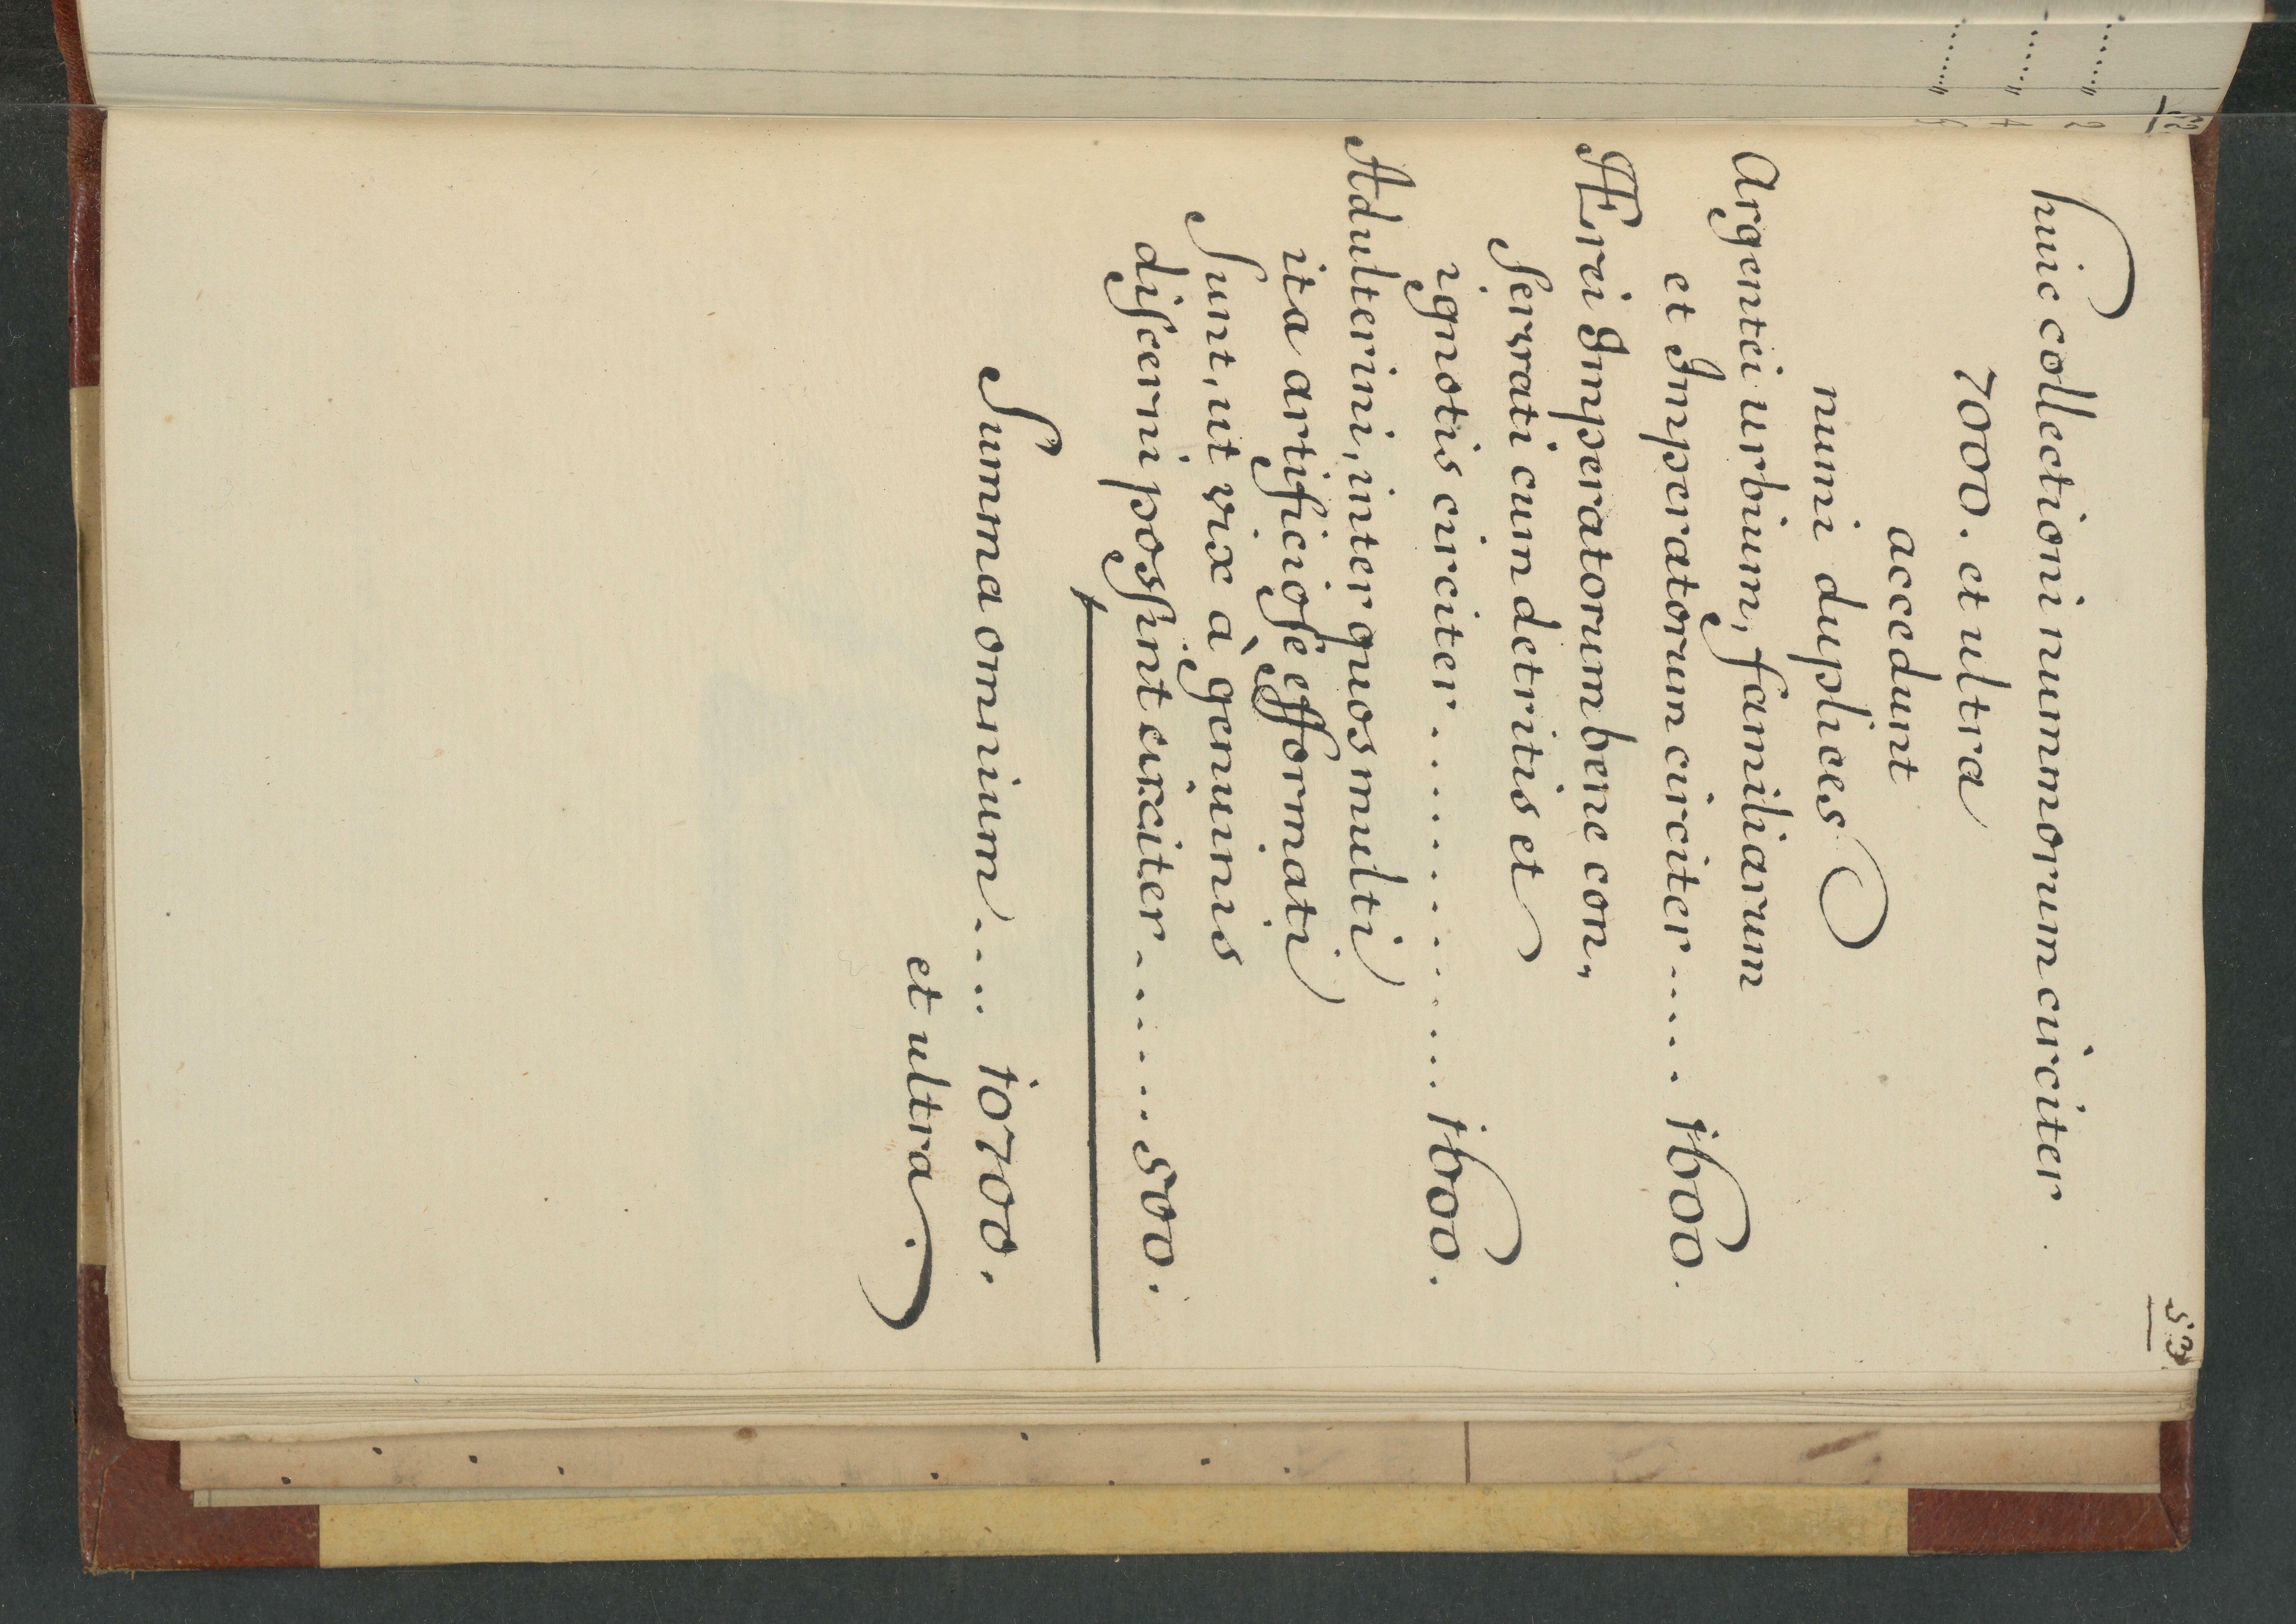 53
huic collectioni nummorum circiter.
7000. et ultra
accedunt
numi duplices
Argentei urbium, familiarum
et Imperatorum circiter..... 1600.
Ærei Imperatorum bene con„
servati cum detritis et
ignotis circiter............. 1600.
Adulterini, inter quos multi
ita artificiose efformati
sunt, ut vix à genuinis
discerni possint circiter....... 500.
Summa omnium.... 10700.
et ultra.
52
2